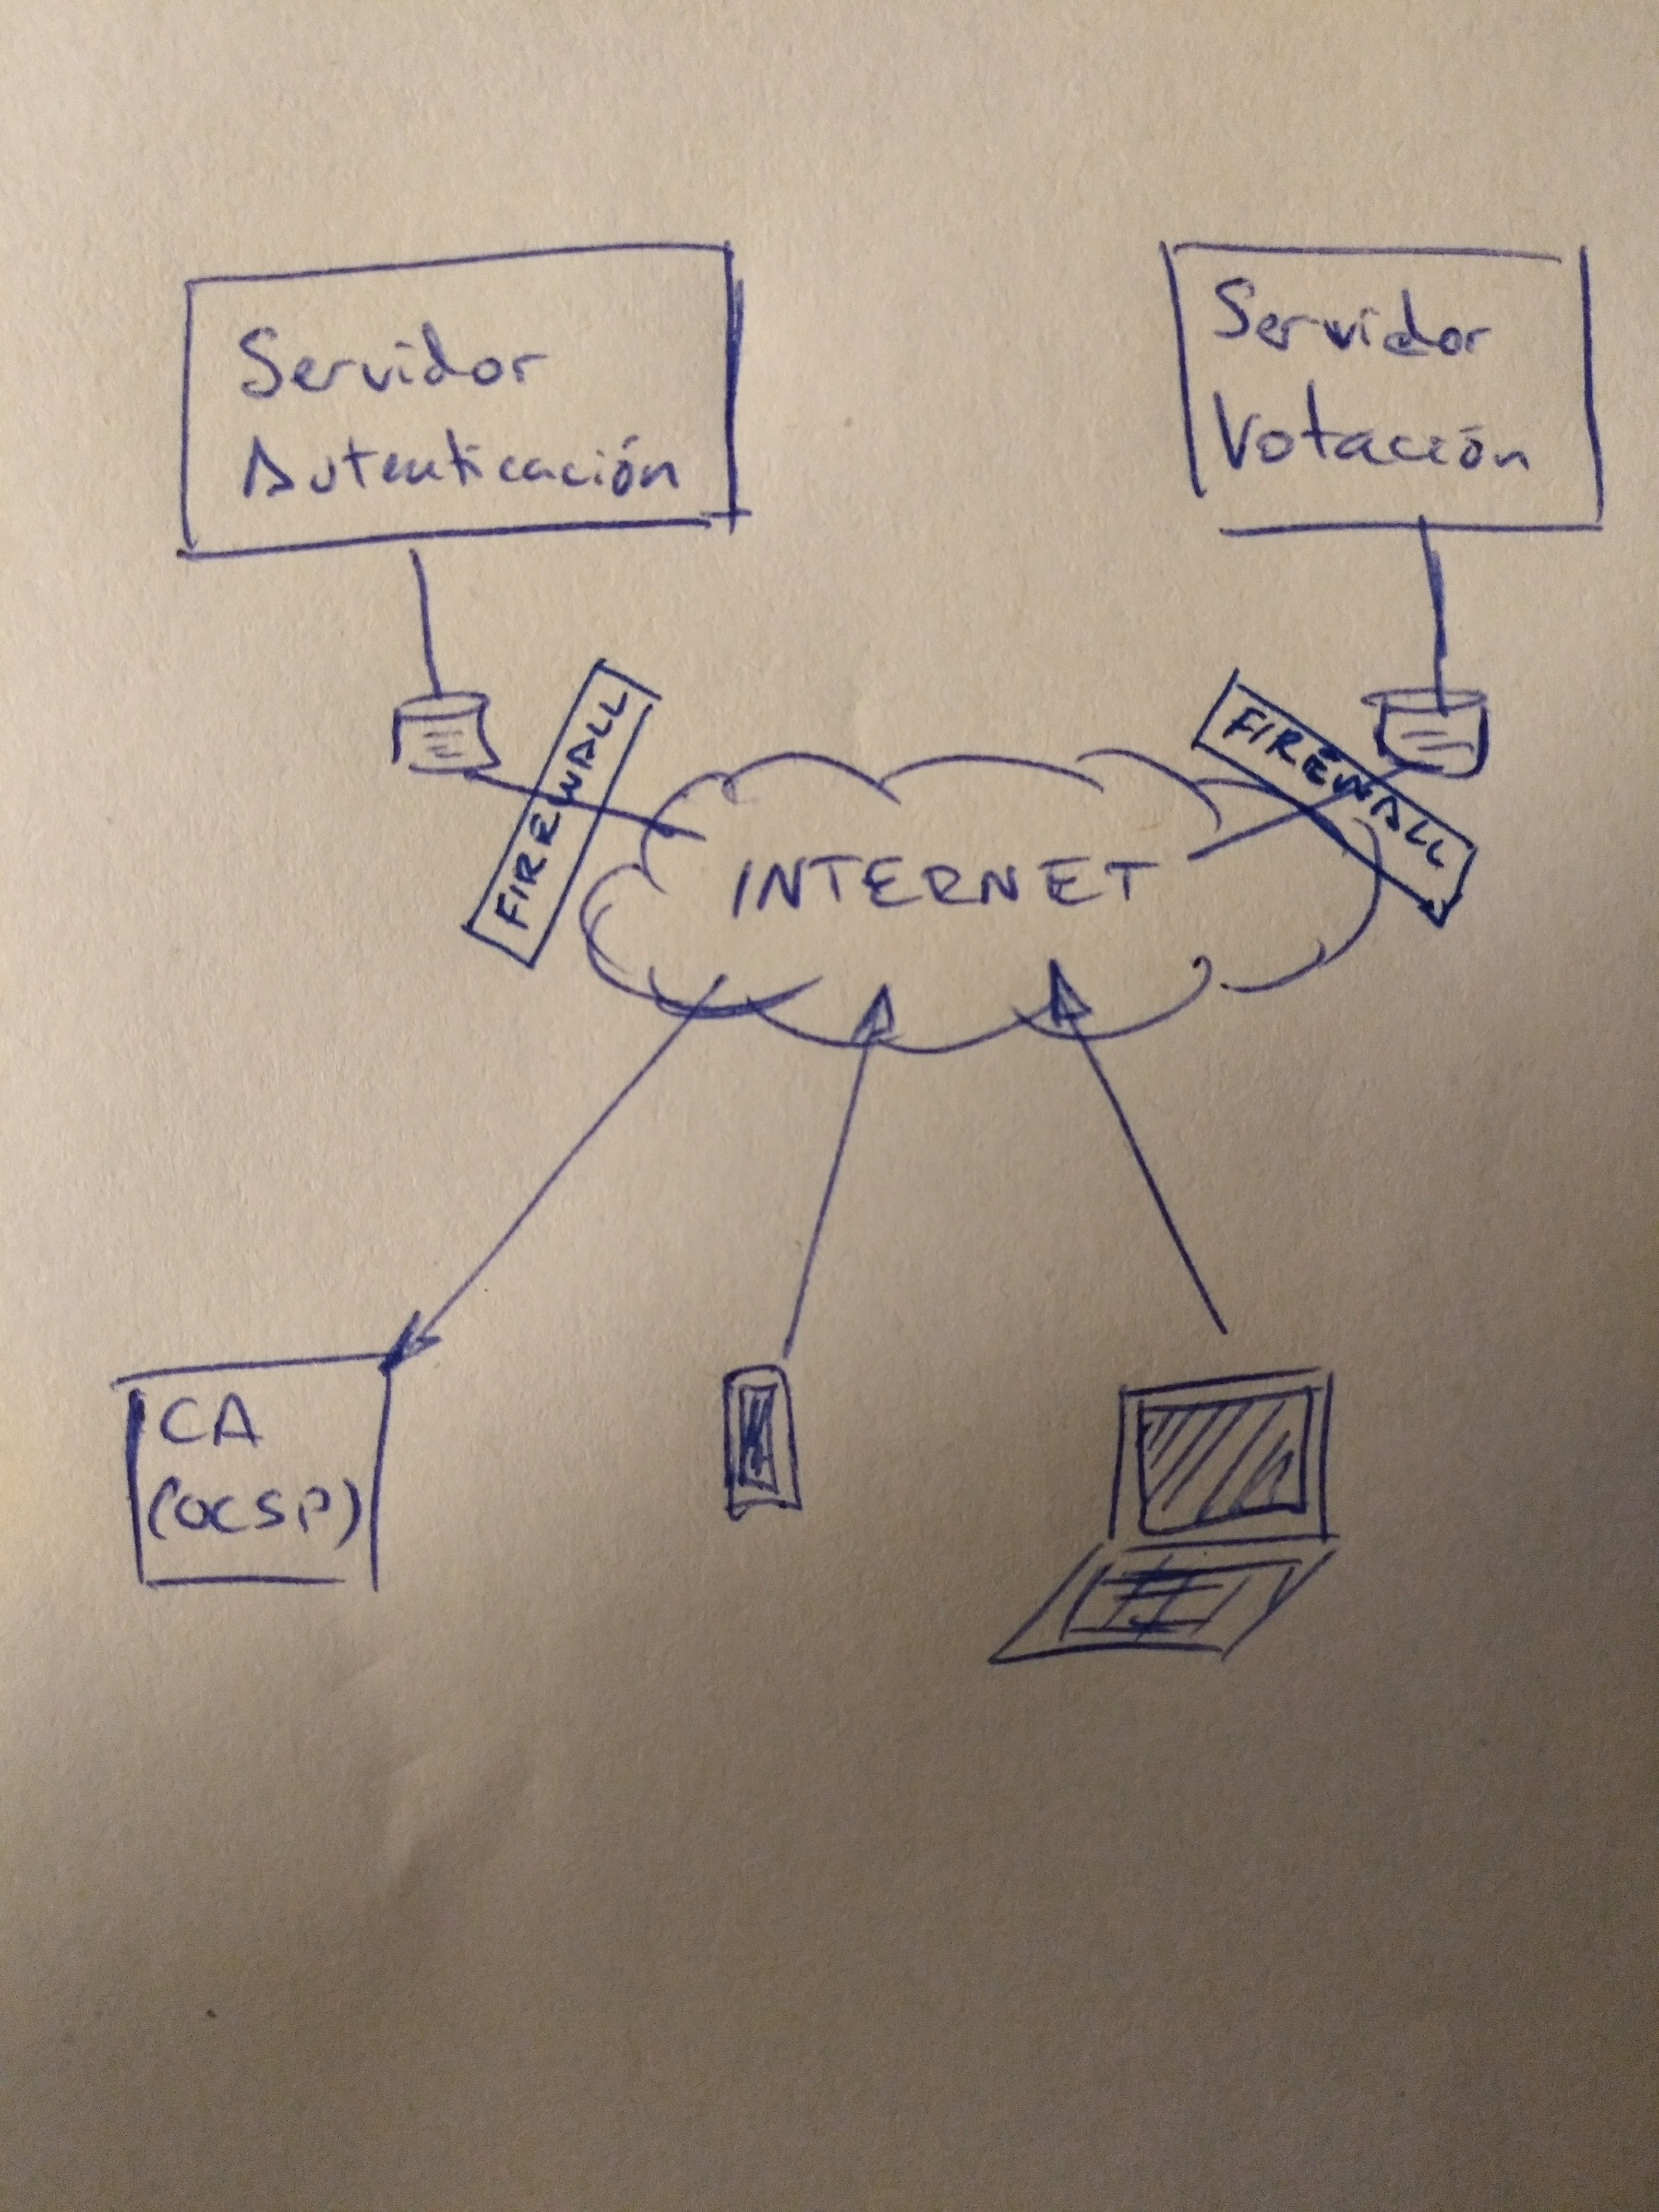 Servidor
Autenticación
Servidor
Votación
FIREWALL
FIREWALL
INTERNET
CA
(OCSP)